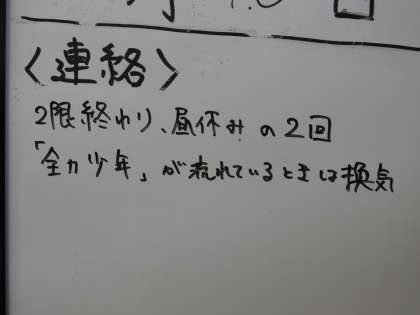 〈連絡〉
2限終わり、昼休みの2回
「全力少年」が流れているときは換気